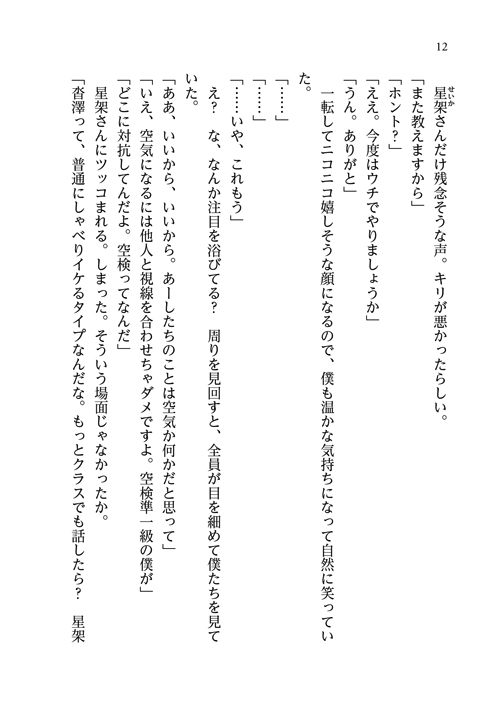 12
星架さんだけ残念そうな声。キリが悪かったらしい。
せいか
「また教えますから」
「ホント？」
「ええ。今度はウチでやりましょうか」
「うん。ありがと」
一転してニコニコ嬉しそうな顔になるので、僕も温かな気持ちになって自然に笑ってい
た。
「……」
「……」
「……いや、これもう」
え？　な、なんか注目を浴びてる？　周りを見回すと、全員が目を細めて僕たちを見て
いた。
「ああ、いいから、いいから。あーしたちのことは空気か何かだと思って」
「いえ、空気になるには他人と視線を合わせちゃダメですよ。空検準一級の僕が」
「どこに対抗してんだよ。空検ってなんだ」
星架さんにツッコまれる。しまった。そういう場面じゃなかったか。
「沓澤って、普通にしゃべりイケるタイプなんだな。もっとクラスでも話したら？　星架